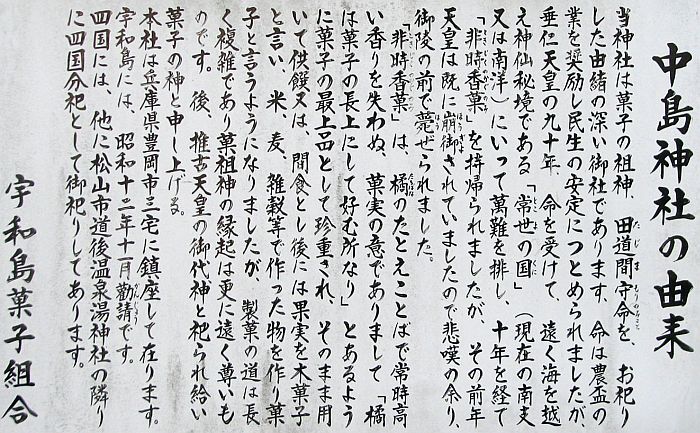 中島神社の由来
当神社は菓子の祖神、田道間守命を、お祀り
した由緒の深い御社であります、命は農蚕の
業を奨励し民生の安定につとめられましたが、
垂仁天皇の九十年、命を受けて、遠く海を越
え神仙秘境である「常世の国」(現在の南支
又は南洋)にいって萬難を排し、十年を経て
「非時香菓」を持帰られましたが、その前年
天皇は既に崩御されていましたので悲嘆の余り、
御陵の前で薨ぜられました。
「非時香菓」は、橘のたとえことばで常時高
い香りを失わぬ、菓実の意でありまして「橘
は菓子の長上にして好む所なり」とあるよう
に菓子の最上品として珍重され、そのまま用
いて供饌又は、間食とし後には果実を木菓子
と言い、米、麦、雑穀等で作った物を作り菓
子と言うようになりましたが、製菓の道は長
く複雑であり菓祖神の縁起は更に遠く尊いも
のです。後、推古天皇の御代神と祀られ給い
菓子の神と申し上げる。
本社は兵庫県豊岡市三宅に鎮座して在ります。
宇和島には、昭和十二年十一月勸請です。
四国には、他に松山市道後温泉湯神社の隣り
に四国分祀として御祀りしてあります。
宇和島菓子組合